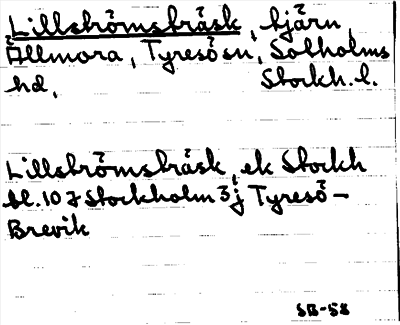 Lillströmsträsk, tjärn
Ällmora, Tyresö sn, Sotholms
hd, Stockh. l.
Lillströmsträsk, ek Stockh
bl. 10 I Stockholm 3 j Tyresö –
Brevik
SB-58